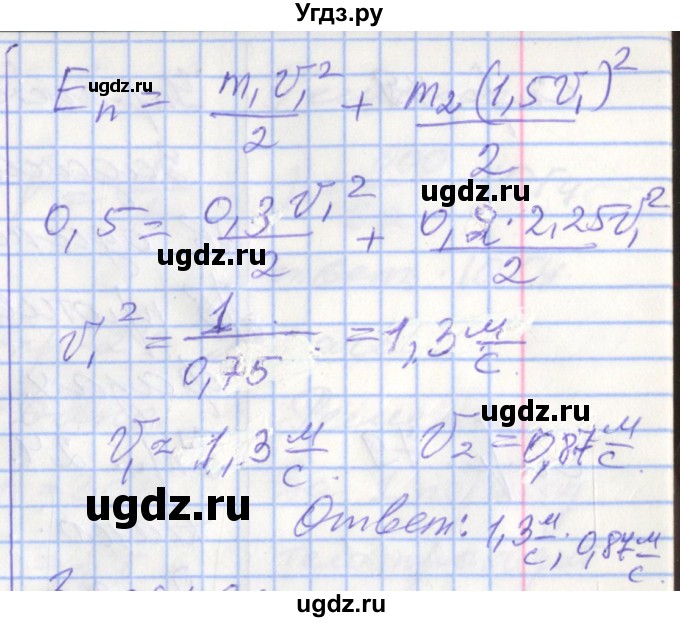 Угдз.ру
Eп = m₁v₁²/2 + m₂(1,5v₁)²/2
ugdz.ru
ugdz.ru
0,5 = 0,3v₁²/2 + 0,2·2,25v₁²/2
ugdz.ru
v₁² = 1/0,75 = 1,3 м/с
ugdz.ru
v₁ = 1,3 м/с v₂ = 0,87 м/с
ugdz.ru
Ответ: 1,3 м/с; 0,87 м/с.
ugdz.ru